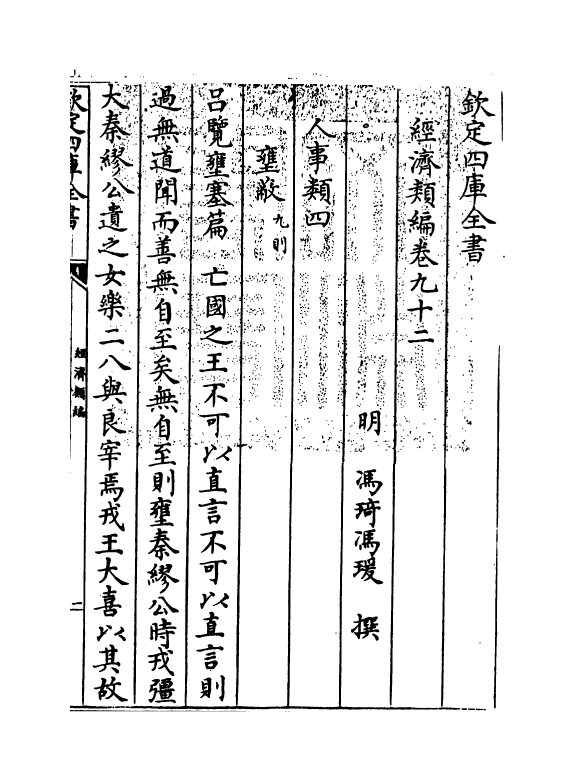 欽定四庫全書
經濟類編卷九十二
明　馮琦馮瑗　撰
人事類四
壅蔽九則
呂覽壅塞篇　亡國之王不可以直言不可以直言則
過無道聞而善無自至矣無自至則壅秦繆公時戎彊
大秦繆公遺之女樂二八與良宰焉戎王大喜以其故
欽定四庫全書
經濟類編
二